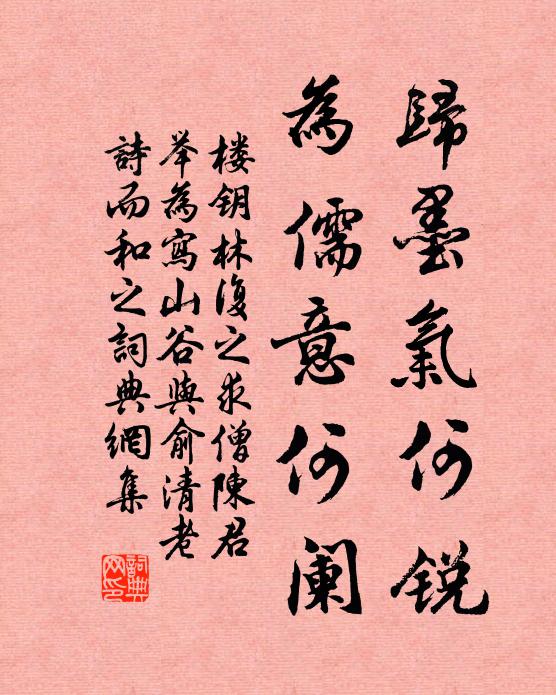 歸墨氣何锐
為儒意何阑
楼钥林復之求僧陳君
举為寫山谷與俞清老
詩而和之詞典網集
詞典
网印